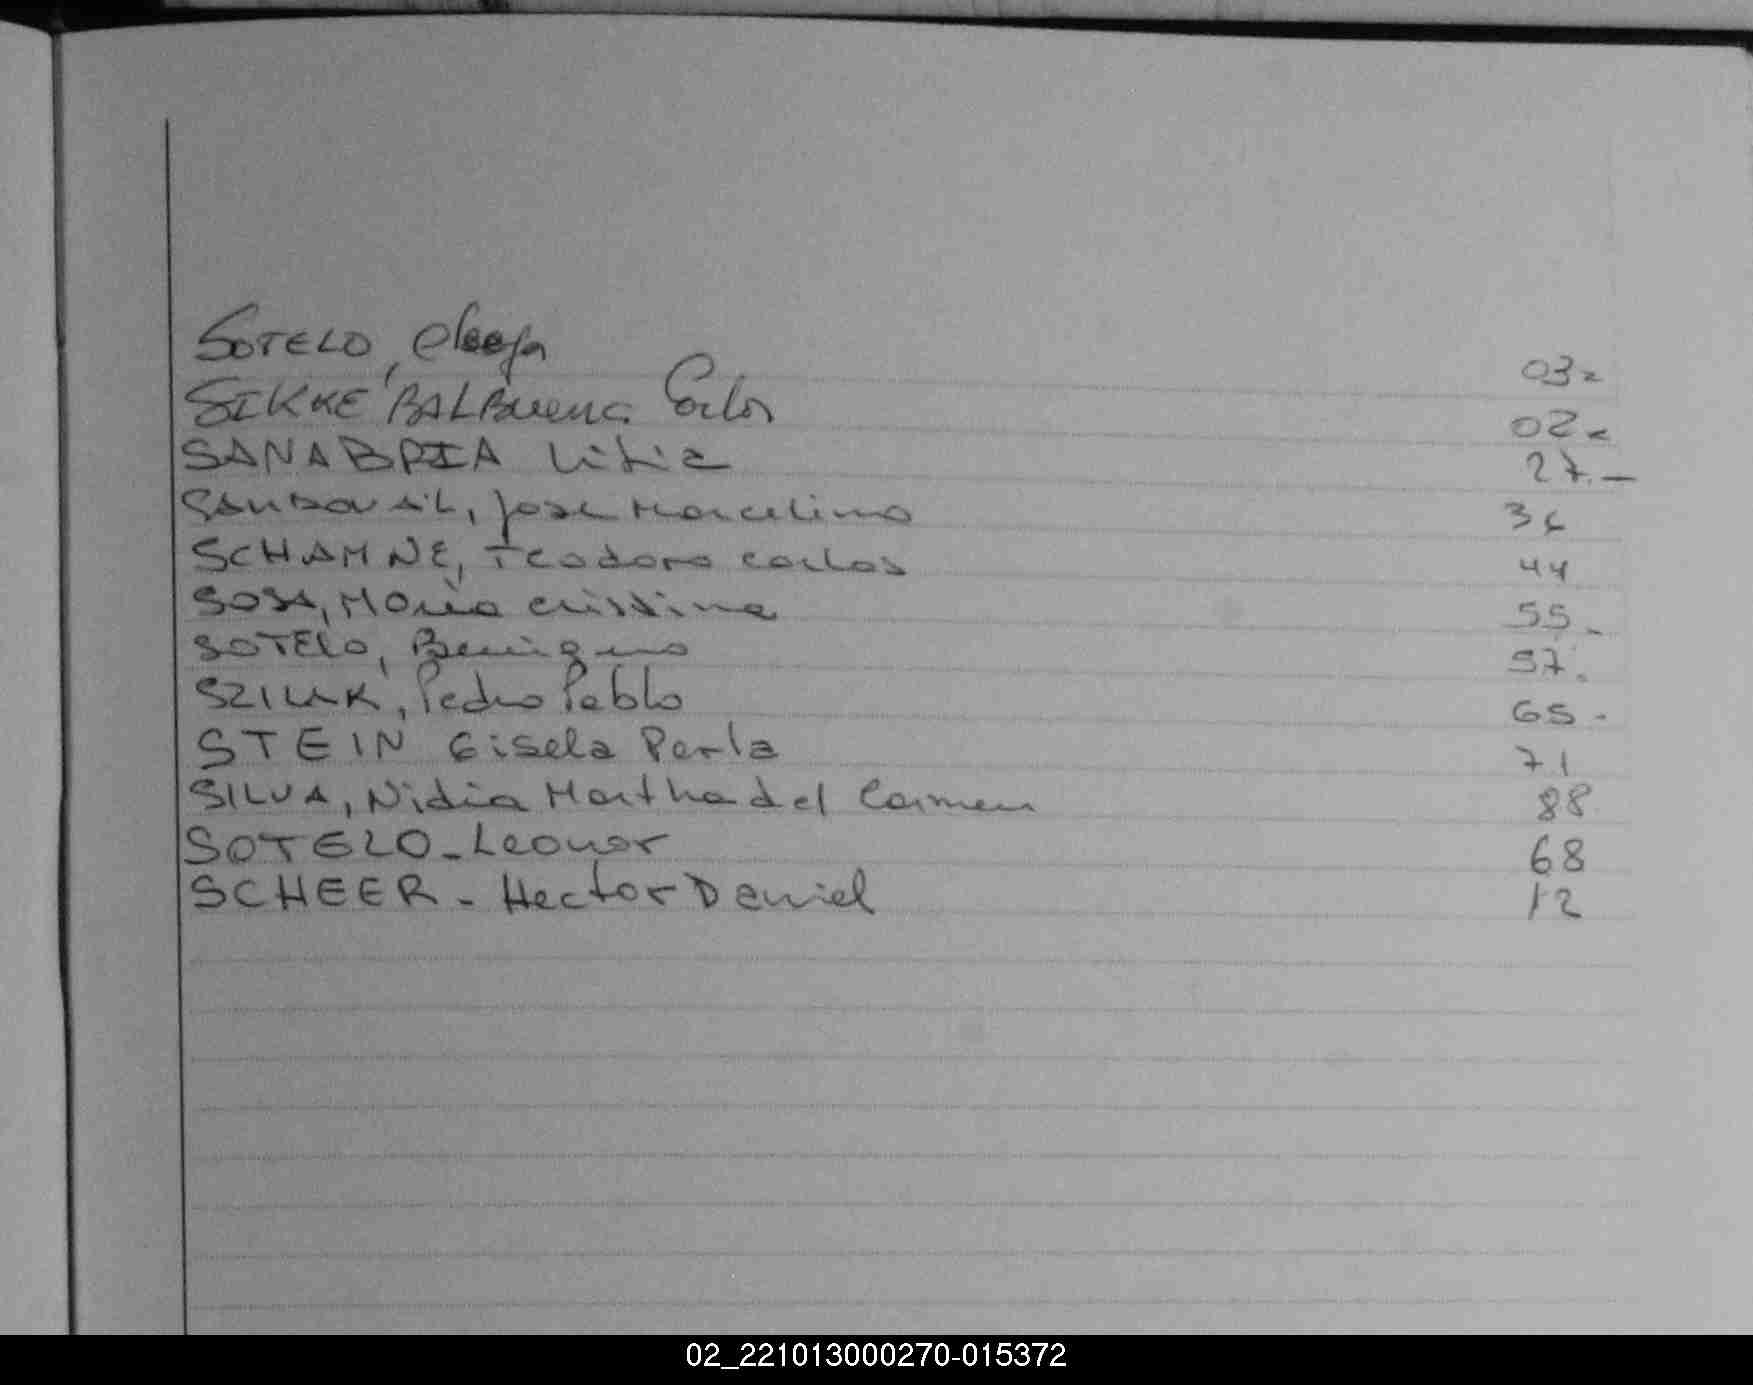 SOTELO, Eleofa 03-
SIKKE BALBuena Carlos 02-
SANABRIA Litia 27.-
SANDOVAL, José Marcelino 36
SCHAMNE, Teodoro Carlos 44
SOSA, María Cristina 55-
SOTELO, Benigno 57.
SZILAK, Pedro Pablo 65-
STEIN Gisela Perla 71
SILVA, Nidia Martha del Carmen 88
SOTELO-Leonor 68
SCHEER- Hector Daniel 12
02_221013000270-015372